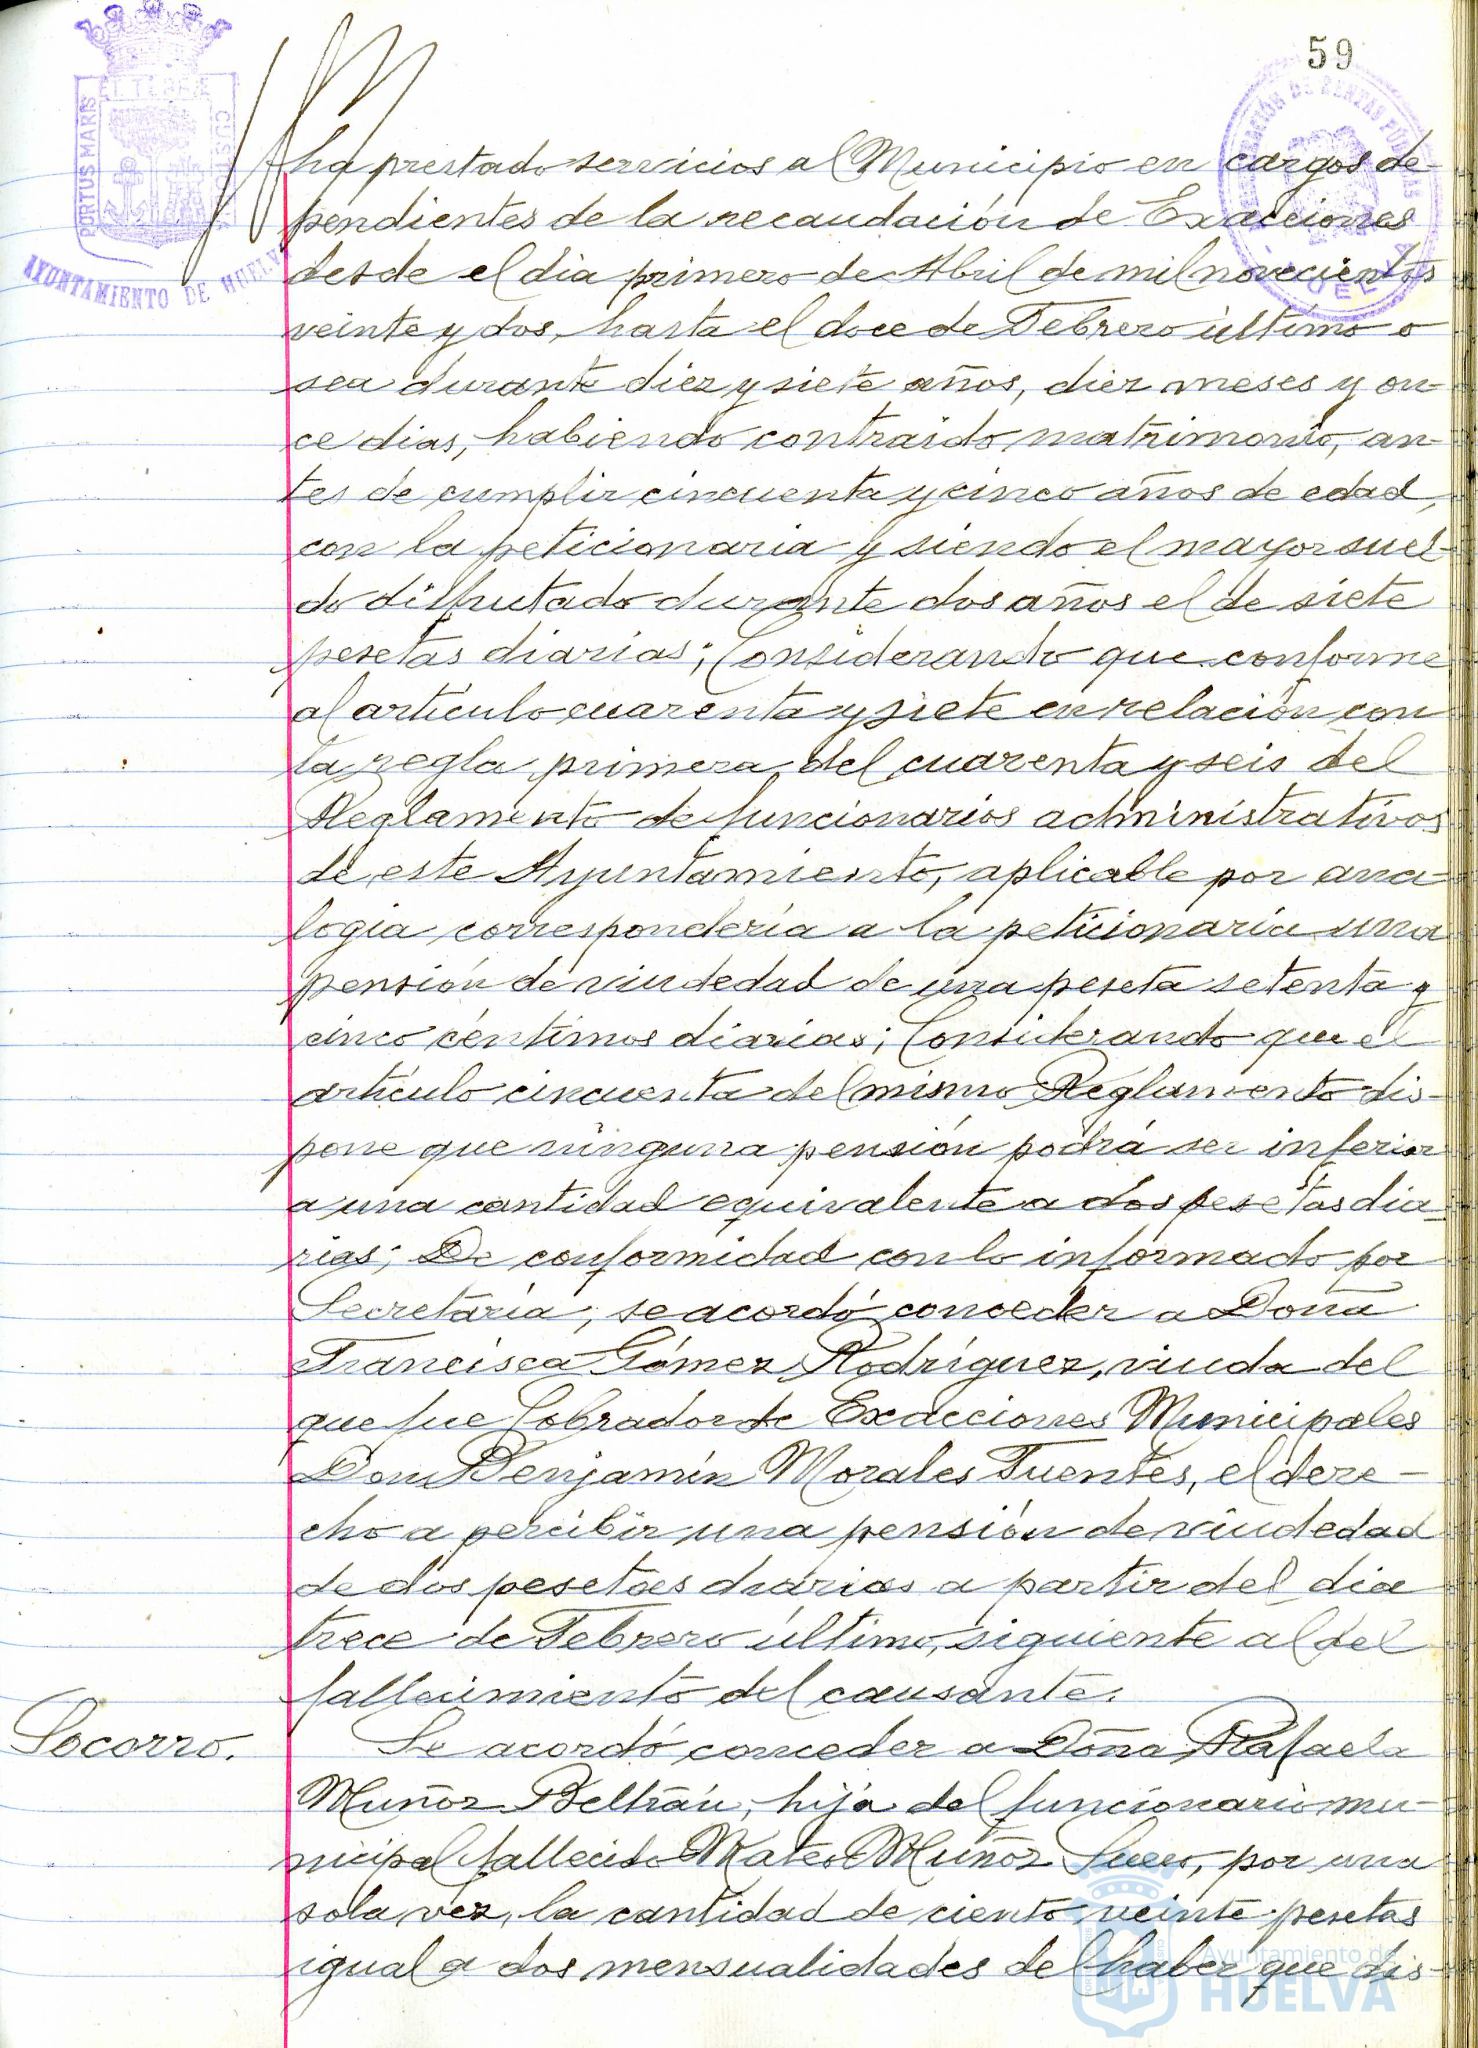 59
PORTUS MARIS
ET TERRÆ
CUST
AYUNTAMIENTO DE HUELVA
ha prestado servicios al Municipio en cargos de-
pendientes de la recaudación de Exacciones
desde el dia primero de Abril de mil novecientos
veinte y dos, hasta el doce de Febrero último o
sea durante diez y siete años, diez meses y on-
ce dias, habiendo contraido matrimonio, an-
tes de cumplir cincuenta y cinco años de edad,
con la peticionaria y siendo el mayor suel-
do disfrutado durante dos años el de siete
pesetas diarias; Considerando que conforme
al artículo cuarenta y siete en relación con
la regla primera del cuarenta y seis del
Reglamento de funcionarios administrativos
de este Ayuntamiento, aplicable por ana-
logia correspondería a la peticionaria una
pensión de viudedad de una peseta setenta y
cinco céntimos diarias; Considerando que el
artículo cincuenta del mismo Reglamento dis-
pone que ninguna pensión podrá ser inferior
a una cantidad equivalente a dos pesetas dia-
rias; De conformidad con lo informado por
Secretaría, se acordó conceder a Doña
Francisca Gómez Rodríguez, viuda del
que fue Cobrador de Exacciones Municipales
Don Benjamín Morales Fuentes, el dere-
cho a percibir una pensión de viudedad
de dos pesetas diarias a partir del dia
trece de Febrero último, siguiente al del
fallecimiento del causante.
Socorro.
Se acordó conceder a Doña Rafaela
Muñoz Beltrán, hija del funcionario mu-
nicipal fallecido Mateo Muñoz, por una
sola vez, la cantidad de ciento veinte pesetas
igual a dos mensualidades del haber que dis-
Ayuntamiento de
HUELVA